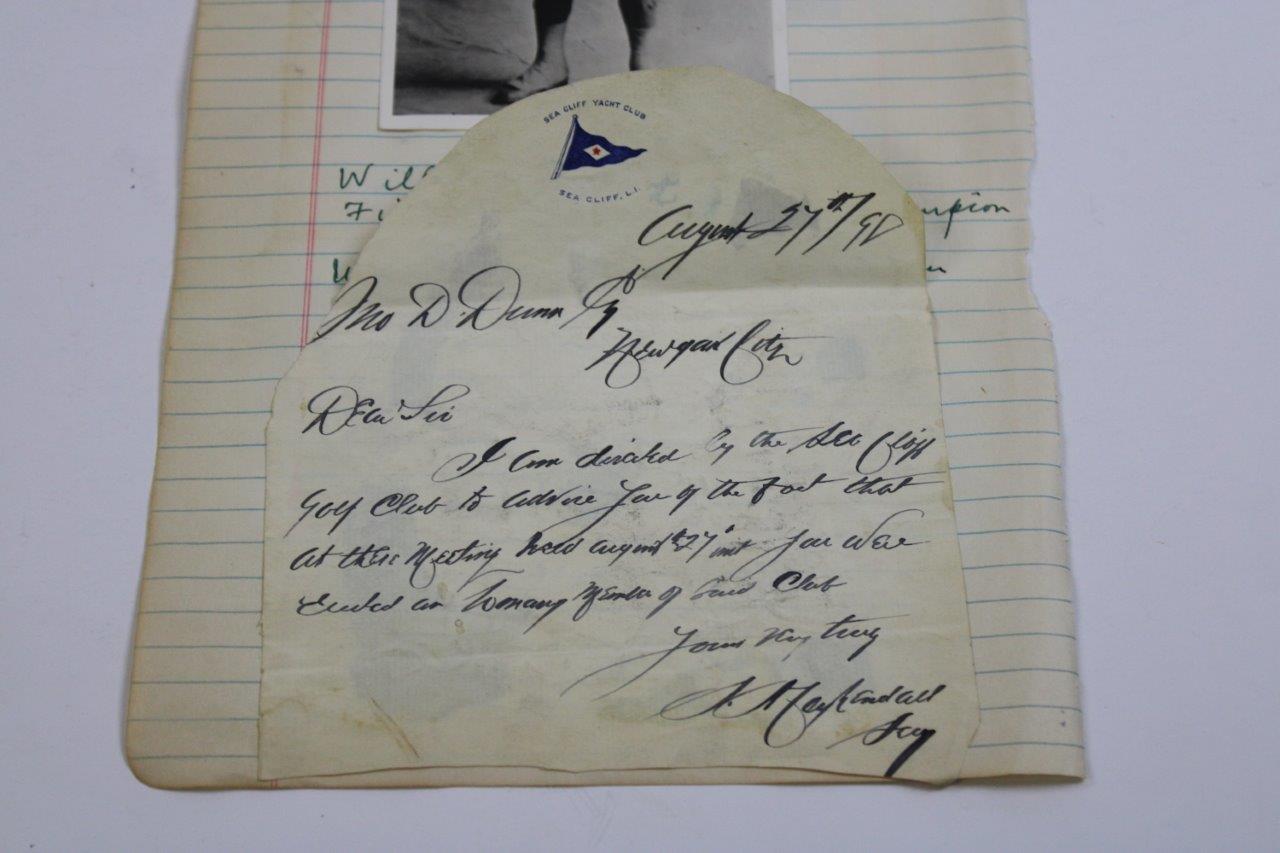 Wil
Fi
mpion
SEA CLIFF YACHT CLUB
SEA CLIFF, L.I.
August 27th/98
Jno D. Dunn
Newyork City
Dear Sir
I am directed by the Sea Cliff
Golf Club to advise you of the fact that
at their Meeting held august 27th inst you were
Elected an Honorary Member of said Club
Yours very truly
Secy